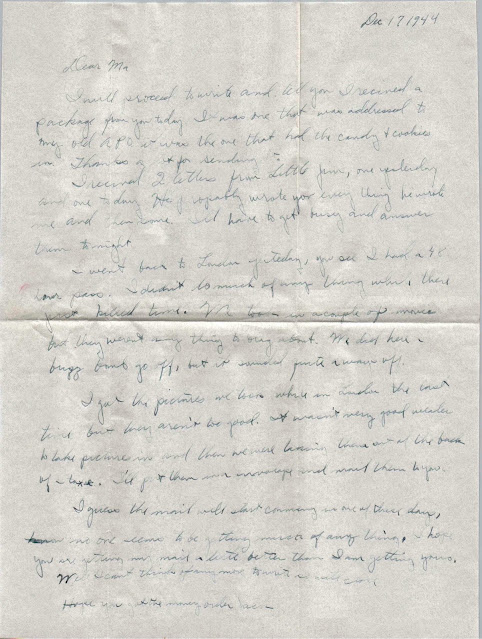 Dec 17 1944
Dear Ma
I will proceed to write and tell you I received a
package from you today. It was one that was addressed to
my old APO it was the one that had the candy & cookies
in. Thanks for sending it.
I received 2 letters from Little Jim, one yesterday
and one today. He probably wrote you everything he wrote
me and then some. I'll have to get busy and answer
them tonight
I went back to London yesterday, you see I had a 48
hour pass. I didn't do much of anything while there
just killed time. We took in a couple of movies
but they weren't anything to brag about. We did hear a
buzz bomb go off, but it sounded quite a ways off.
I got the pictures we took while in London the last
time but they aren't too good. It wasn't very good weather
to take pictures in and then we were taking them out of the back
of a taxi. I'll put them in an envelope and mail them to you.
I guess the mail will start coming in one of these days,
no one seems to be getting much of anything. I hope
you are getting my mail a little better than I am getting yours.
Well I can't think of any more to write
Hope you got the money order